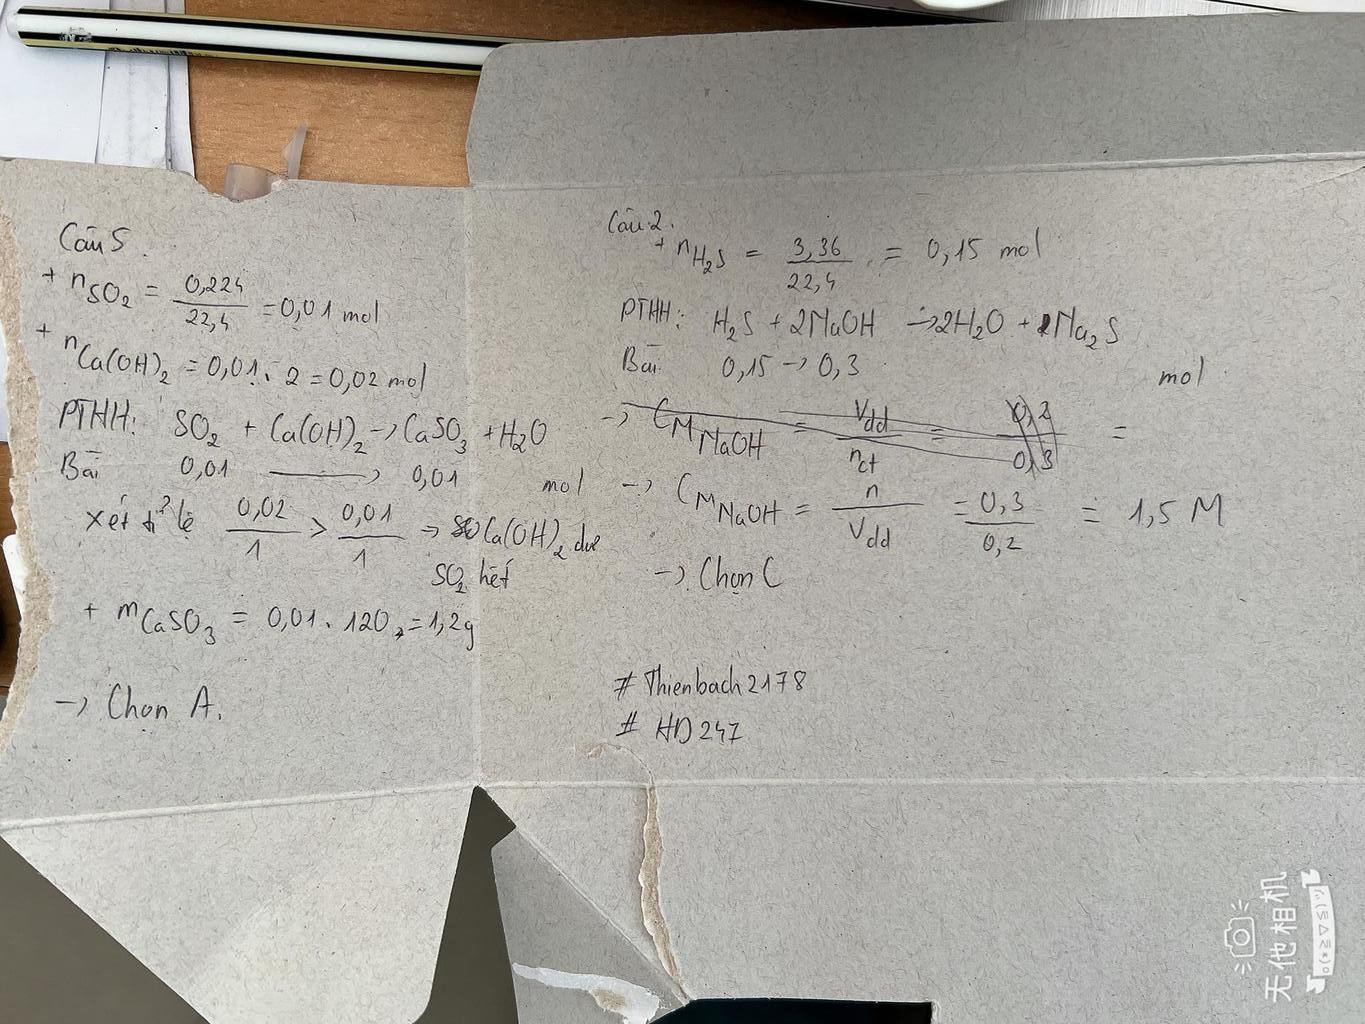 Câu 5.
+ nSO₂ = 0,224/22,4 = 0,01 mol
+ nCa(OH)₂ = 0,01 . 2 = 0,02 mol
PTHH: SO₂ + Ca(OH)₂ → CaSO₃ + H₂O
Bài 0,01 → 0,01 mol
Xét tỉ lệ 0,02/1 > 0,01/1 → Ca(OH)₂ dư
SO₂ hết
+ mCaSO₃ = 0,01 . 120 = 1,2g
→ Chọn A.
Câu 2.
+ nH₂S = 3,36/22,4 = 0,15 mol
PTHH: H₂S + 2NaOH → 2H₂O + Na₂S
Bài 0,15 → 0,3 mol
→ CM NaOH = Vdd/nct = 0,2/0,3 =
→ CM NaOH = n/Vdd = 0,3/0,2 = 1,5 M
→ Chọn C
# Thienbach2178
# HD247
无他相机